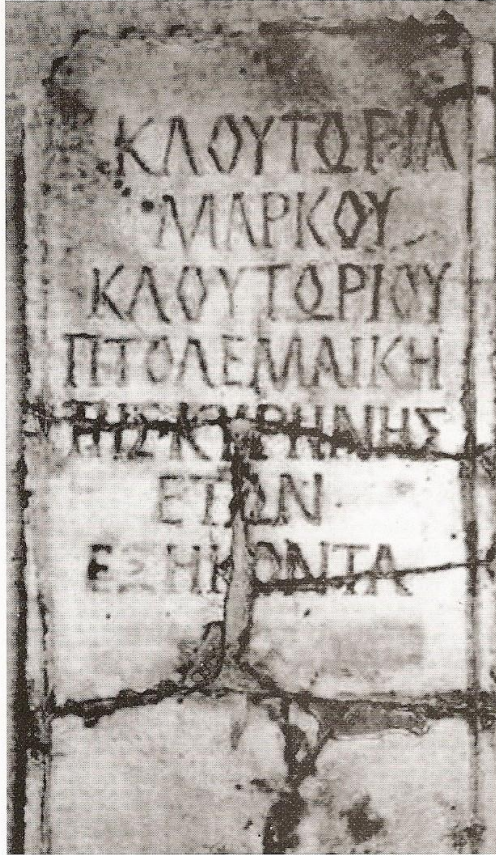 ΚΛΟΥΤΩΡΙΑ
ΜΑΡΚΟΥ
ΚΛΟΥΤΩΡΙΟΥ
ΠΤΟΛΕΜΑΙΚΗ
ΤΗΣ ΚΥΡΗΝΗΣ
ΕΤΩΝ
ΕΞΗΚΟΝΤΑ